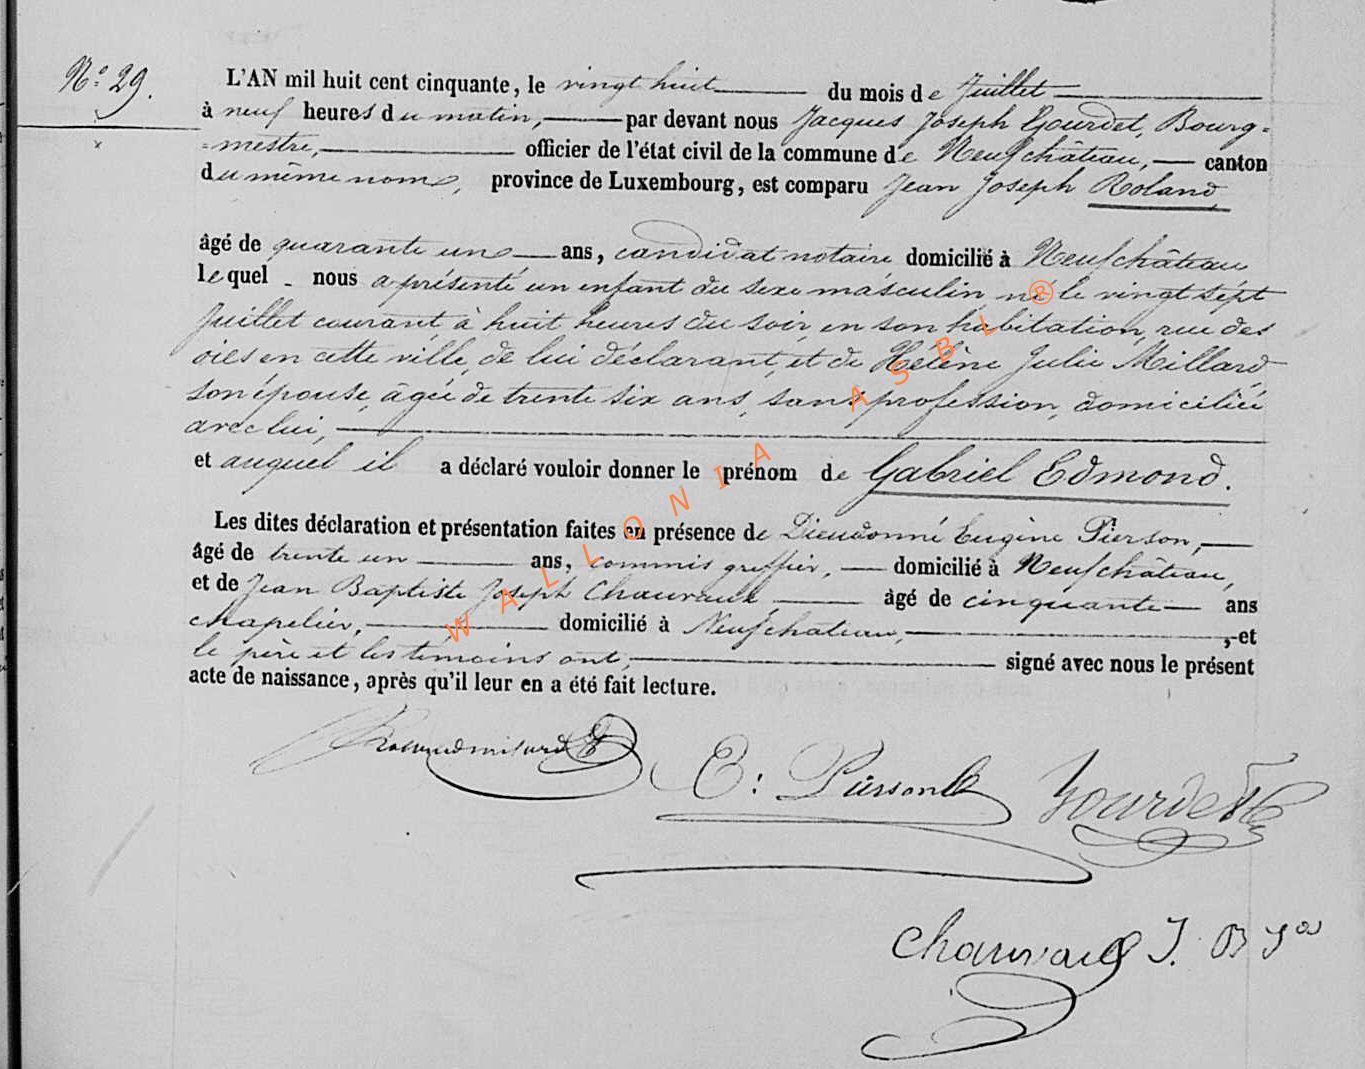 N° 29.
L'AN mil huit cent cinquante, le vingt huit du mois de Juillet
à neuf heures du matin, par devant nous Jacques Joseph Gourdet, Bourg-
-mestre, officier de l'état civil de la commune de Neufchâteau, canton
du même nom, province de Luxembourg, est comparu Jean Joseph Roland,
âgé de quarante un ans, candidat notaire domicilié à Neufchâteau
lequel nous a présenté un enfant du sexe masculin né le vingt sept
Juillet courant, à huit heures du soir, en son habitation, rue des
oies en cette ville, de lui déclarant, et de Helène Julie Millard
son épouse, âgée de trente six ans, sans profession, domiciliée
avec lui,
et auquel il a déclaré vouloir donner le prénom de Gabriel Edmond.
Les dites déclaration et présentation faites en présence de Dieudonné Eugène Pierson,
âgé de trente un ans, commis greffier, domicilié à Neufchâteau,
et de Jean Baptiste Joseph Chauvaux, âgé de cinquante ans
chapelier, domicilié à Neufchateau, , et
le père et les témoins ont, signé avec nous le présent
acte de naissance, après qu'il leur en a été fait lecture.
E: Pierson Gourdet
Chauvaux J. B
WALLONIA ASBL ®